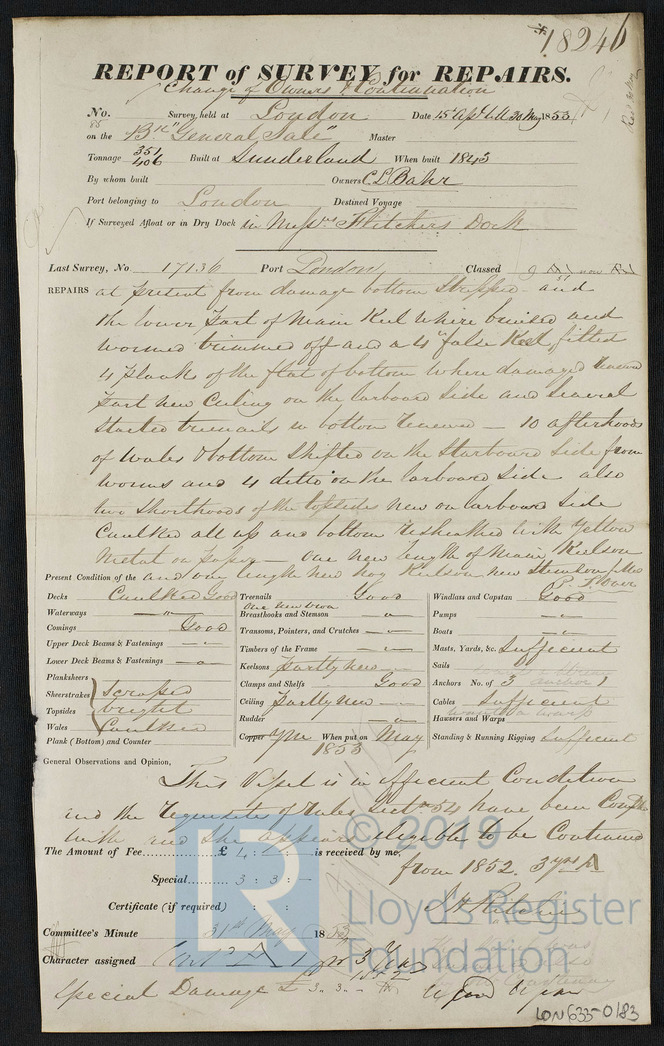 18246
REPORT of SURVEY for REPAIRS.
Change of Owners & Continuation
No. 85 Survey held at London Date 15 Apl till 30 May 1853
on the Bk "General Sale" Master
Tonnage 351 406 Built at Sunderland When built 1843
By whom built Owners C L Bahr
Port belonging to London Destined Voyage
If Surveyed Afloat or in Dry Dock in Messrs Flitchers Dock
Last Survey, No 17136 Port London, Classed 9 A1 now
REPAIRS at present from damage bottom Stripped and
the lower part of Main Keel where bruised and
wormed trimmed off and a 4" false Keel fitted
4 plank of the flat of bottom where damaged
part new Ceiling on the larboard side and several
started treenails in bottom renewed — 10 afterhoods
of Wales & bottom shifted on the Starboard side from
worms and 4 ditto on the larboard side also
two Shorthoods of the topside new on larboard side
Caulked all up and bottom resheathed with Yellow
Metal on paper — One new length of Main Keelson
and one length new hog Keelson, new Stemson
P. T. Over
Present Condition of the
Decks Caulked Good
Waterways —"—
Comings Good
Upper Deck Beams & Fastenings —"—
Lower Deck Beams & Fastenings —"—
Planksheers
Sheerstrakes
Topsides
Wales
scraped
bright
Caulked
Plank (Bottom) and Counter
Treenails Good
One new
Breasthooks and Stemson —"—
Transoms, Pointers, and Crutches —"—
Timbers of the Frame —"—
Keelsons Partly new —
Clamps and Shelfs Good
Ceiling Partly new —
Rudder —"—
Copper YM When put on May
1853
Windlass and Capstan Good
Pumps —"—
Boats —"—
Masts, Yards, &c. Sufficient
Sails
Anchors No. of 3 anchors 1
Cables Sufficient
Hawsers and Warps
Standing & Running Rigging Sufficient
General Observations and Opinion,
This Vessel is in efficient Condition
and the requisites of Rules Sectn 54 have been
with and she appears eligible to be Continued
from 1852. 3 yrs A
The Amount of Fee £ 4 : - : - is received by me,
Special 3 : 3 : -
Certificate (if required) : :
Committee's Minute 31st May 1853
Character assigned Cont A 1 for 3 Yrs
1852
Special Damage £ 3 .. 3 .. -
© 2019
Lloyd's Register
Foundation
LON633-0183